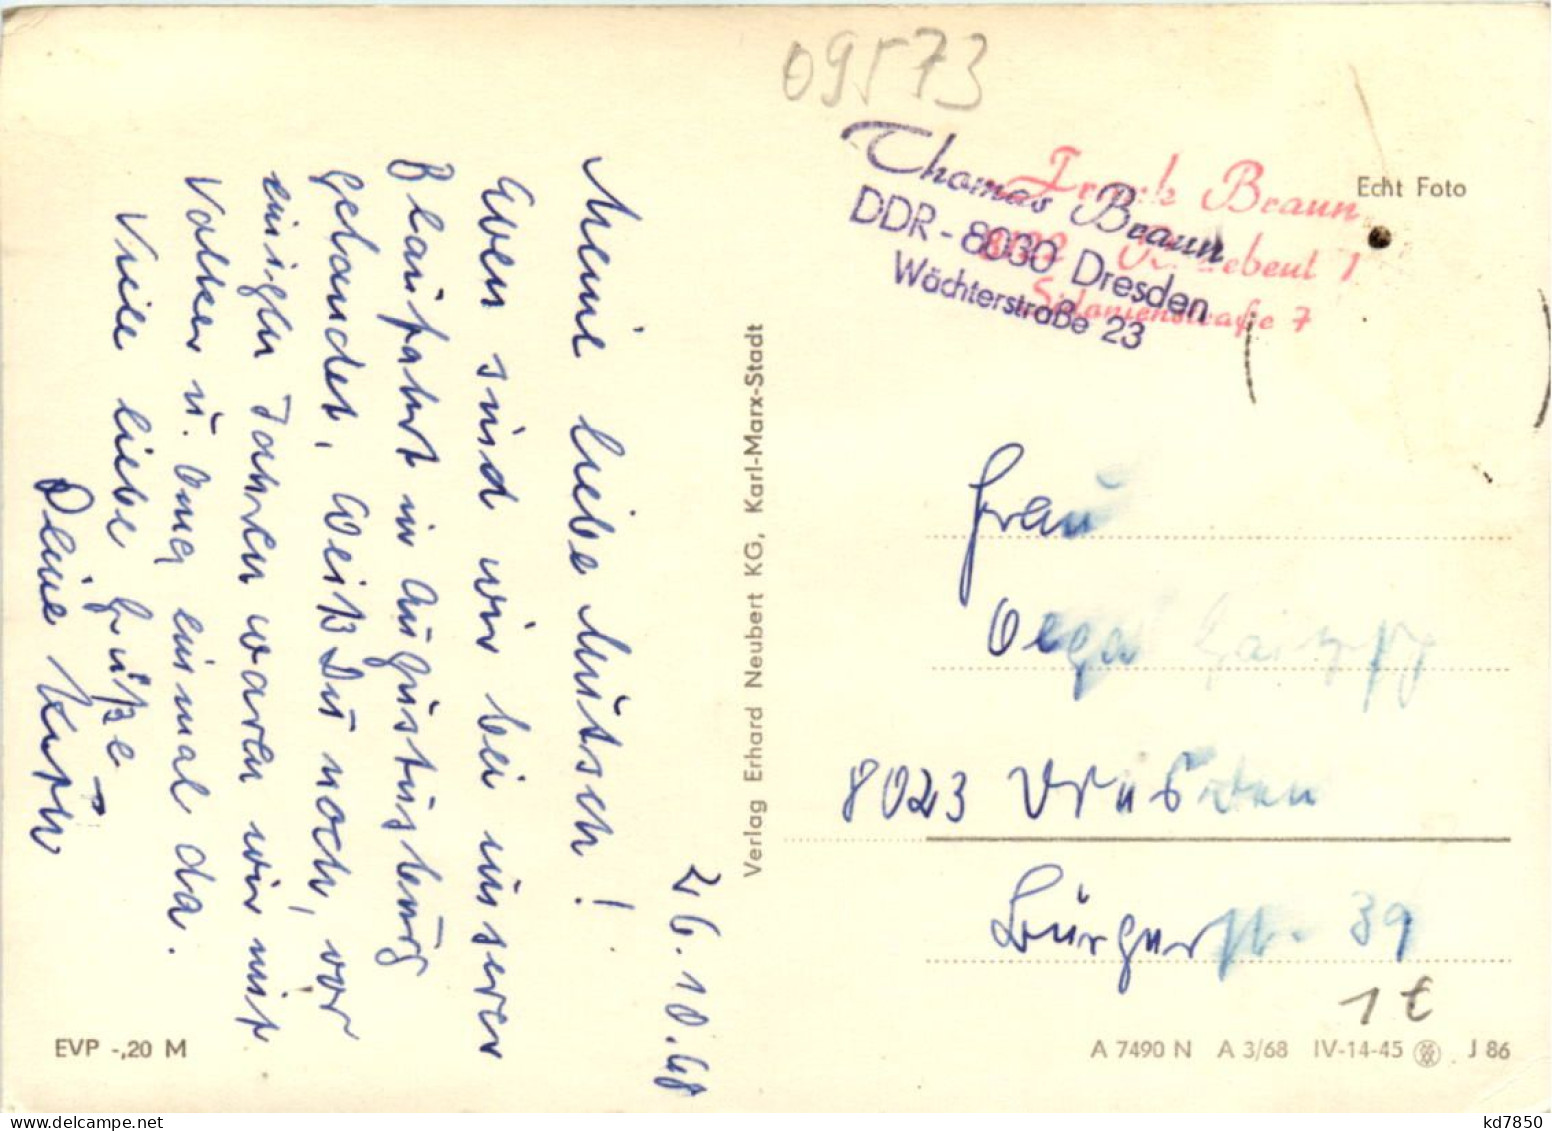 09573
Thomas Braun
DDR - 8030 Dresden
Wächterstraße 23
Frank Braun
Radebeul 1
straße 7
Echt Foto
26.10.68
Meine liebe Mutsch!
Eben sind wir bei unserer
Blaufahrt in Augustusburg
gelandet. Weißt Du noch, vor
einigen Jahren waren wir mit
Volker u. Oma einmal da.
Viele liebe Grüße
Deine
Verlag Erhard Neubert KG, Karl-Marx-Stadt
Frau
Olga
8023 Dresden
Bürgerstr. 39
1 €
EVP -,20 M
A 7490 N A 3/68 IV-14-45 J 86
kd7850